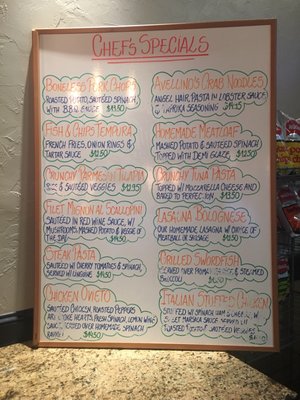 CHEF'S SPECIALS
BONELESS PORK CHOPS
ROASTED POTATO, SAUTÉED SPINACH
WITH B.B.Q. SAUCE
FISH & CHIPS TEMPURA
FRENCH FRIES, ONION RINGS &
TARTAR SAUCE $12.50
CRUNCHY PARMESAN TILAPIA
& SAUTEED VEGGIES $12.95
FILET MIGNON AL SCALLOPINI
SAUTEED IN RED WINE SAUCE, W/
MUSHROOMS, MASHED POTATO & VEGGIE OF
THE DAY
STEAK PASTA
SAUTEED W/ CHERRY TOMATOES & SPINACH,
SERVED W/ LINGUINE $14.50
CHICKEN OVIETO
SAUTEED CHICKEN, ROASTED PEPPERS
ARTICHOKE HEARTS, FRESH SPINACH, LEMON WINE
SAUCE, SERVED OVER HOMEMADE SPINACH
RAVIOLI $14.50
AVELLINO'S CRAB NOODLES
ANGEL HAIR PASTA IN LOBSTER SAUCE
& PAPRIKA SEASONING
HOMEMADE MEATLOAF
MASHED POTATO & SAUTEED SPINACH
TOPPED WITH DEMI GLAZE $12.50
CRUNCHY TUNA PASTA
TOPPED W/ MOZZARELLA CHEESE AND
BAKED TO PERFECTION. $13.95
LASAGNA BOLOGNESE
OUR HOMEMADE LASAGNA W/ CHOICE OF
MEATBALL OR SAUSAGE
GRILLED SWORDFISH
SERVED OVER & STEAMED
BROCCOLI
ITALIAN STUFFED CHICKEN
STUFFED W/ SPINACH
SWEET MARSALA SAUCE
ROASTED POTATO & SAUTEED VEGGIES